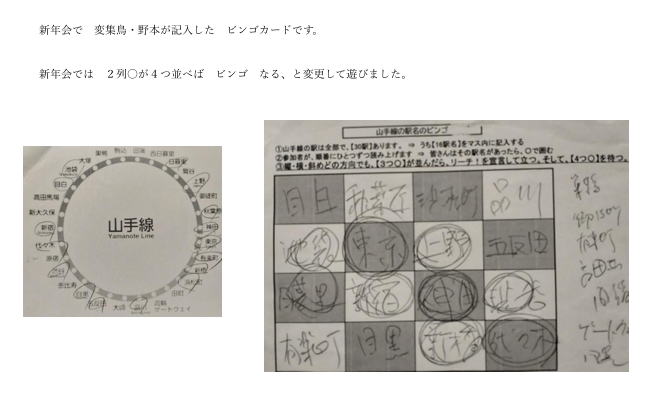 新年会で　変集鳥・野本が記入した　ビンゴカードです。
新年会では　２列○が４つ並べば　ビンゴ　なる、と変更して遊びました。
山手線の駅名のビンゴ
①山手線の駅は全部で、【30駅】あります。 ⇒ うち【16駅名】をマス内に記入する
②参加者が、順番にひとつずつ読み上げます ⇒ 皆さんはその駅名があったら、○で囲む
③縦・横・斜めどの方向でも、【3つ○】が並んだら、リーチ！を宣言して立つ。そして、【4つ○】を待つ。
目白 秋葉原 浜松町 品川
池袋 東京 上野 五反田
新宿 神田 渋谷
有楽町 目黒 新橋 代々木
山手線
Yamanote Line
巣鴨 駒込 田端 西日暮里
大塚 日暮里
池袋 鶯谷
目白 上野
高田馬場 御徒町
新大久保 秋葉原
新宿 神田
代々木 東京
原宿 有楽町
渋谷 新橋
恵比寿 浜松町
目黒 田町
五反田 大崎 品川 高輪
ゲートウェイ